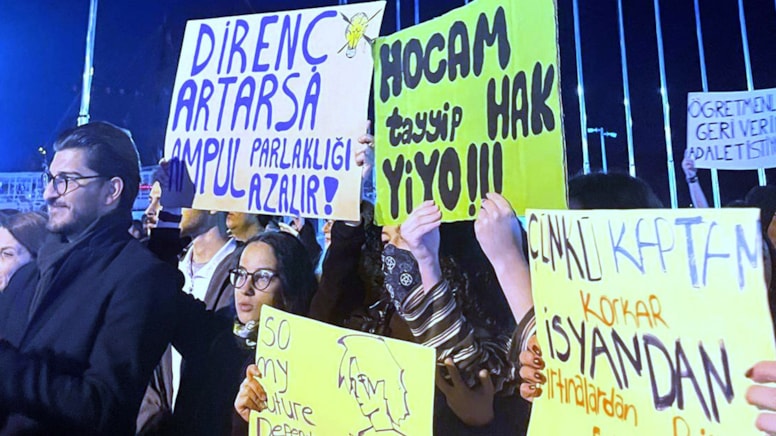 DİRENÇ
ARTARSA
AMPUL PARLAKLIĞI
AZALIR!
HOCAM
tayyip HAK
YİYO!!!
ÖĞRETMENL
GERİ VERİ
ADALETİSTİ
ÇÜNKÜ KAPTAN
KORKAR
İSYANDAN
ırtınalardan
SO
my
future
Depen